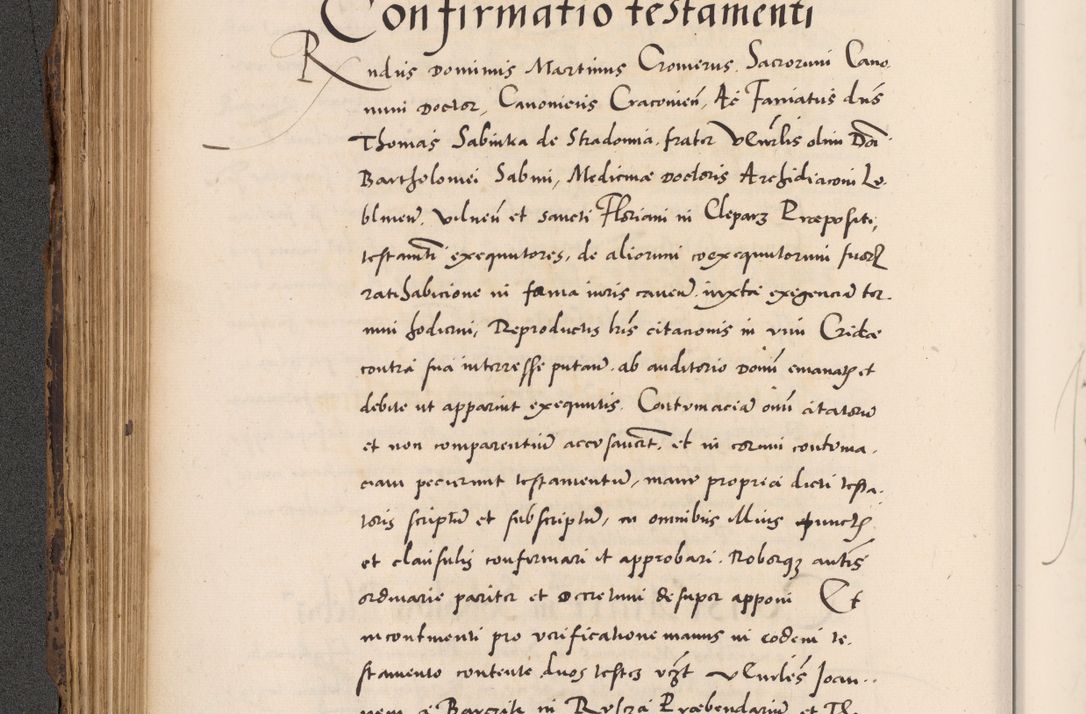 Confirmatio testamenti
Rndus Dominus Martinus Cromerus Sacrorum Cano
num Doctor, Canonicus Cracovien, Ac Famatus dns
Thomas Sabinka de Stradomia, frater Venrlis olim Dni
Bartholomei Sabini, Medicinae Doctoris Archidiaconi Lu
blinen, Vilnen et sancti Floriani in Cleparz Praepositi,
testamti exequutores, de aliorum coexequutorum suorz
ratihabicione in forma iuris caven, iuxta exigenciam ter
mini hodierni, Reproductis lris citacionis in vim Cridae
contra sua interresse putan, ab auditorio Domi emanatz et
debite ut apparuit exequutis, Contumaciam omn citatorum
et non comparentium accusavert, et in eorum contuma
ciam pecierunt testamentum, manu propria dicti testa
toris scriptum et subscriptum, in omnibus illius punctz
et clausulis confirmari et approbari. Roborqz autis
ordinarie pariter et Decretum desuper apponi Et
incontinenti pro verificatione manus in eodem te
stamento contente duos testes vzt Venrles Joan
nem a Barczik in Rusza Praebendarium et Th